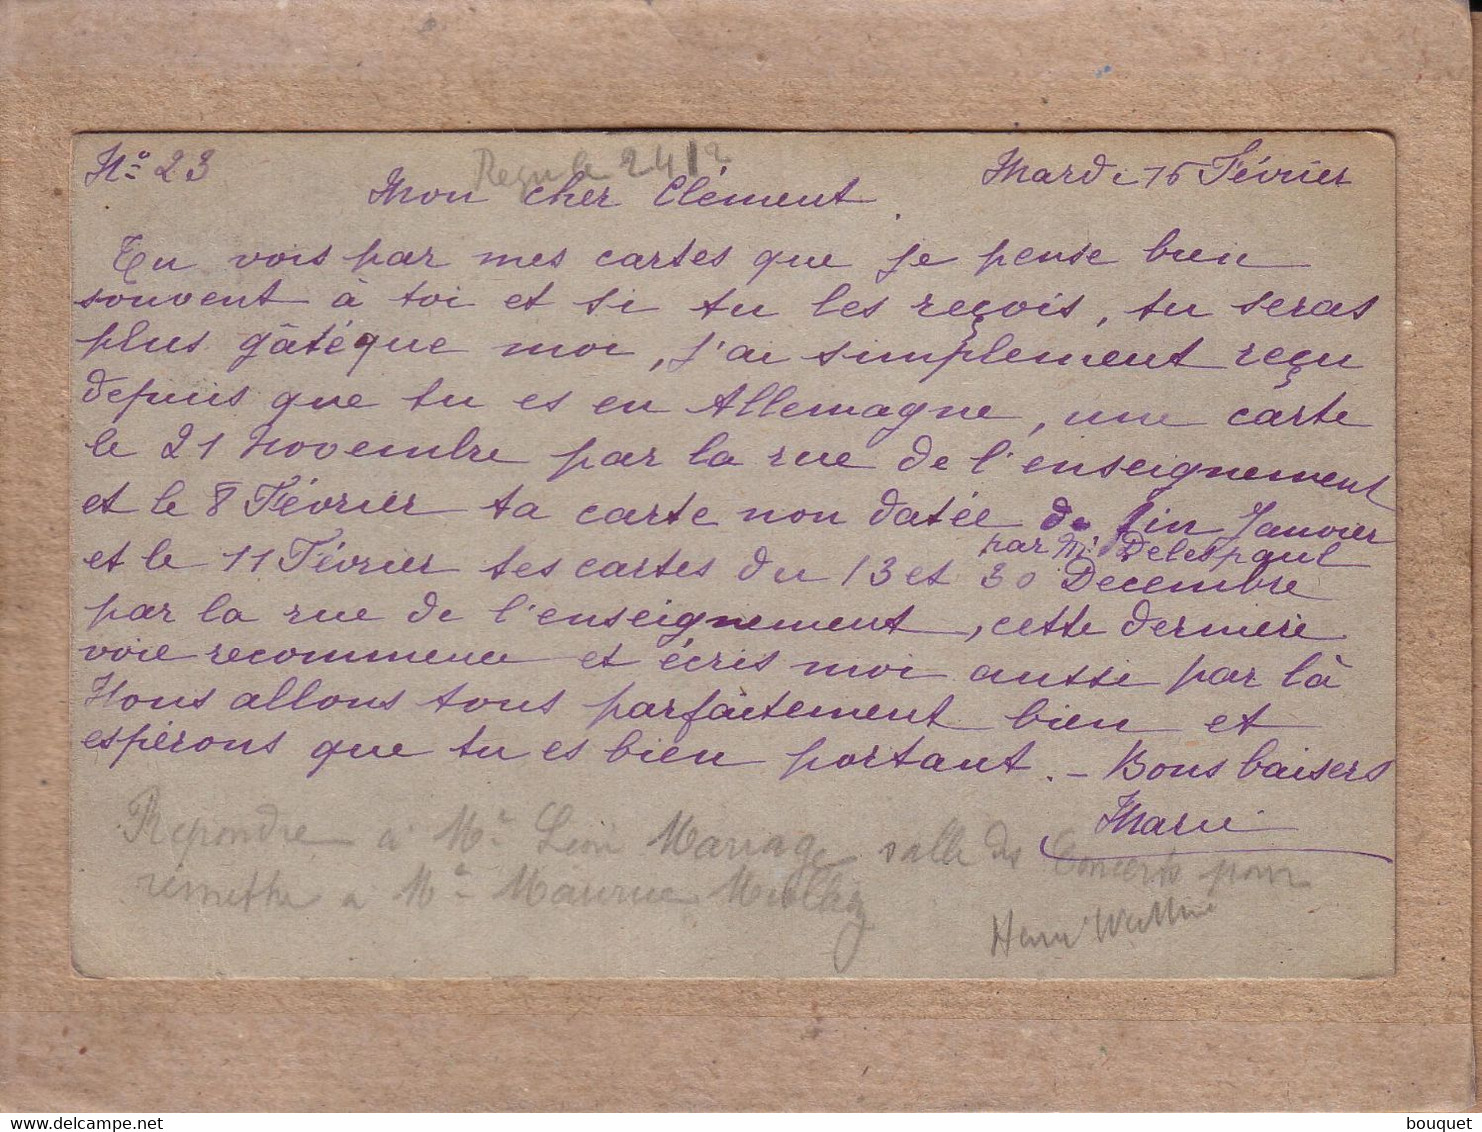 Nº 23
Reçu le 24/2
Mardi 16 Février
Mon cher Clément
Tu vois par mes cartes que je pense bien
souvent à toi et si tu les reçois, tu seras
plus gâté que moi, j'ai simplement reçu
depuis que tu es en Allemagne, une carte
le 21 Novembre par la rue de l'enseignement
et le 8 Février ta carte non datée de fin Janvier
par Mr Delespaul
et le 11 Février tes cartes du 13 et 30 Decembre
par la rue de l'enseignement, cette derniere
voie recommence et écris moi aussi par là
Nous allons tous parfaitement bien et
espérons que tu es bien portant. - Bons baisers
Marie
Repondre à Mr Léon Mariage salle des Concerts pour
remettre a Mr Maurice
Henri
bouquet